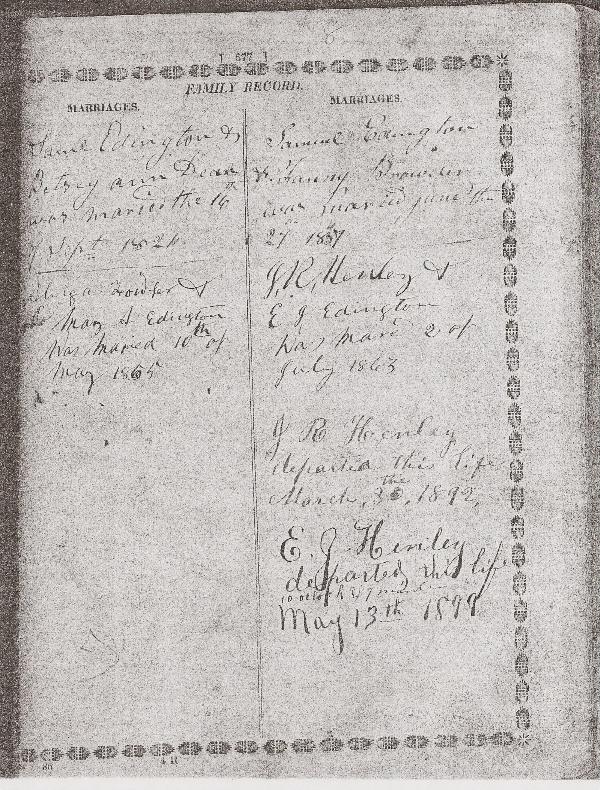 [ 677 ]
FAMILY RECORD.
MARRIAGES.
Saml Edington &
Betsey ann Dean
was maried the 16th
of Sept 1826
Browder &
Mary S Edington
was maried 10th of
May 1865
MARRIAGES.
Samuel Edington
& Fanny Browder
was maried june the
27 1837
J. R. Henley &
E J Edington
was mard 2 of
July 1863
J R Henley
departed this life
March, the 30, 1892,
E. J. Henley
departed this life
10 oclock
May 13th 1899